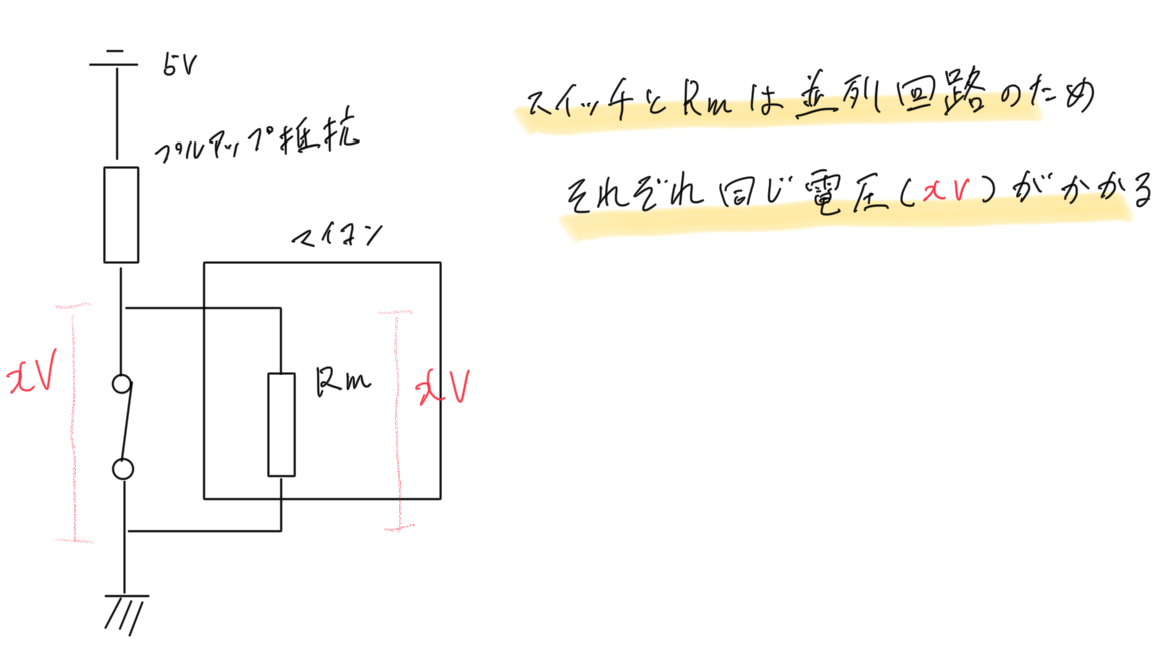 5V
プルアップ抵抗
マイコン
xV
Rm
xV
スイッチとRmは並列回路のため
それぞれ同じ電圧(xV)がかかる